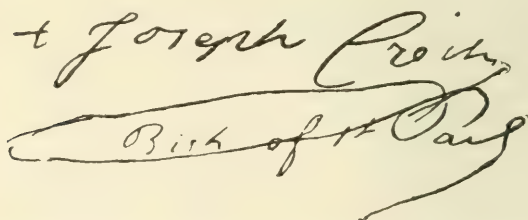 + Joseph Cretin
Bish of St Paul